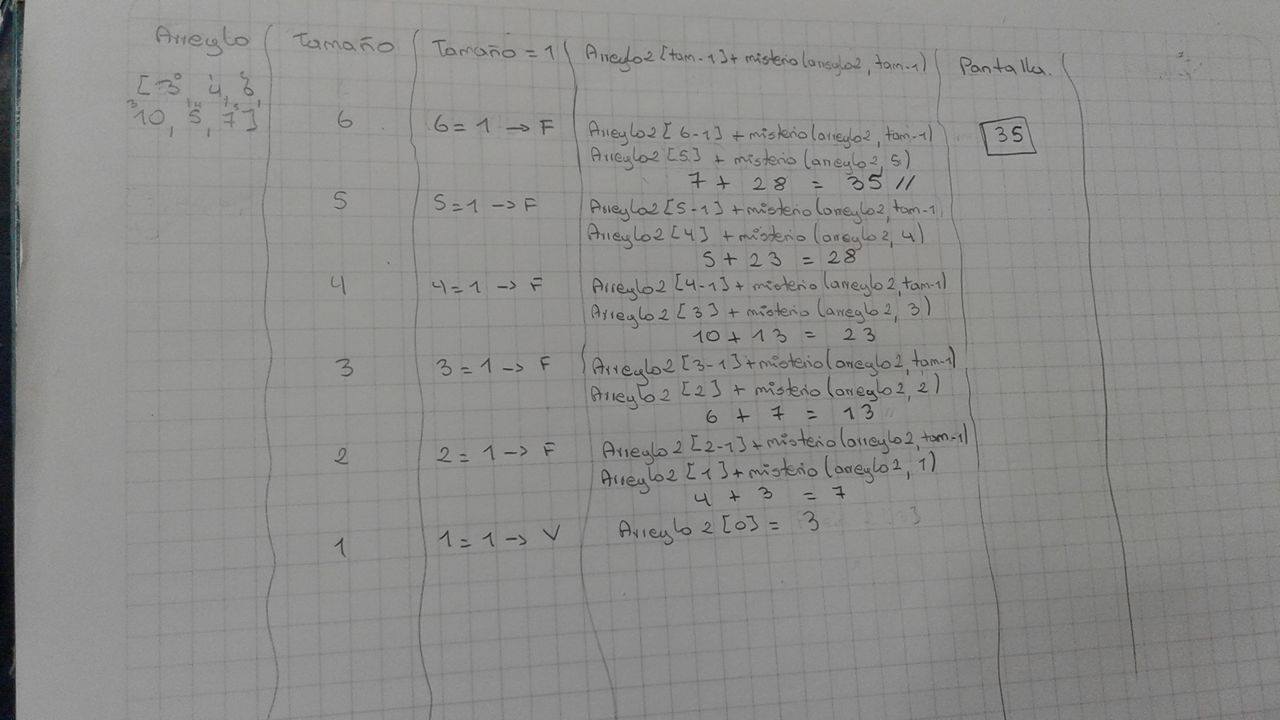 Arreglo Tamaño Tamaño = 1 Arreglo2[tam-1]+misterio(arreglo2, tam-1) Pantalla.
[3, 4, 6,
10, 5, 7] 6 6 = 1 → F Arreglo2[6-1] + misterio(arreglo2, tam-1) 35
Arreglo2[5] + misterio(arreglo2, 5)
7 + 28 = 35 //
5 5 = 1 → F Arreglo2[5-1] + misterio(arreglo2, tam-1
Arreglo2[4] + misterio(arreglo2, 4)
5 + 23 = 28
4 4 = 1 → F Arreglo2[4-1] + misterio(arreglo2, tam-1)
Arreglo2[3] + misterio(arreglo2, 3)
10 + 13 = 23
3 3 = 1 → F Arreglo2[3-1]+misterio(arreglo2, tam-1)
Arreglo2[2] + misterio(arreglo2, 2)
6 + 7 = 13
2 2 = 1 → F Arreglo2[2-1]+misterio(arreglo2, tam-1)
Arreglo2[1]+misterio(arreglo2, 1)
4 + 3 = 7
1 1 = 1 → V Arreglo2[0] = 3